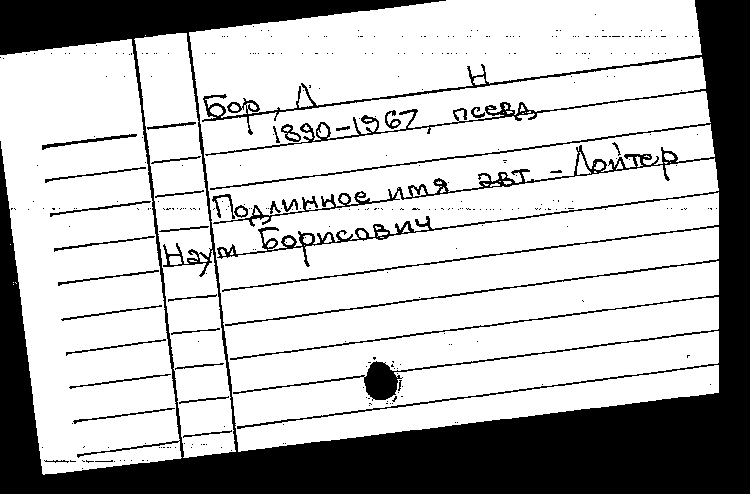 Бор, Л Н
1890-1967, псевд.
Подлинное имя авт. - Лойтер
Наум Борисович